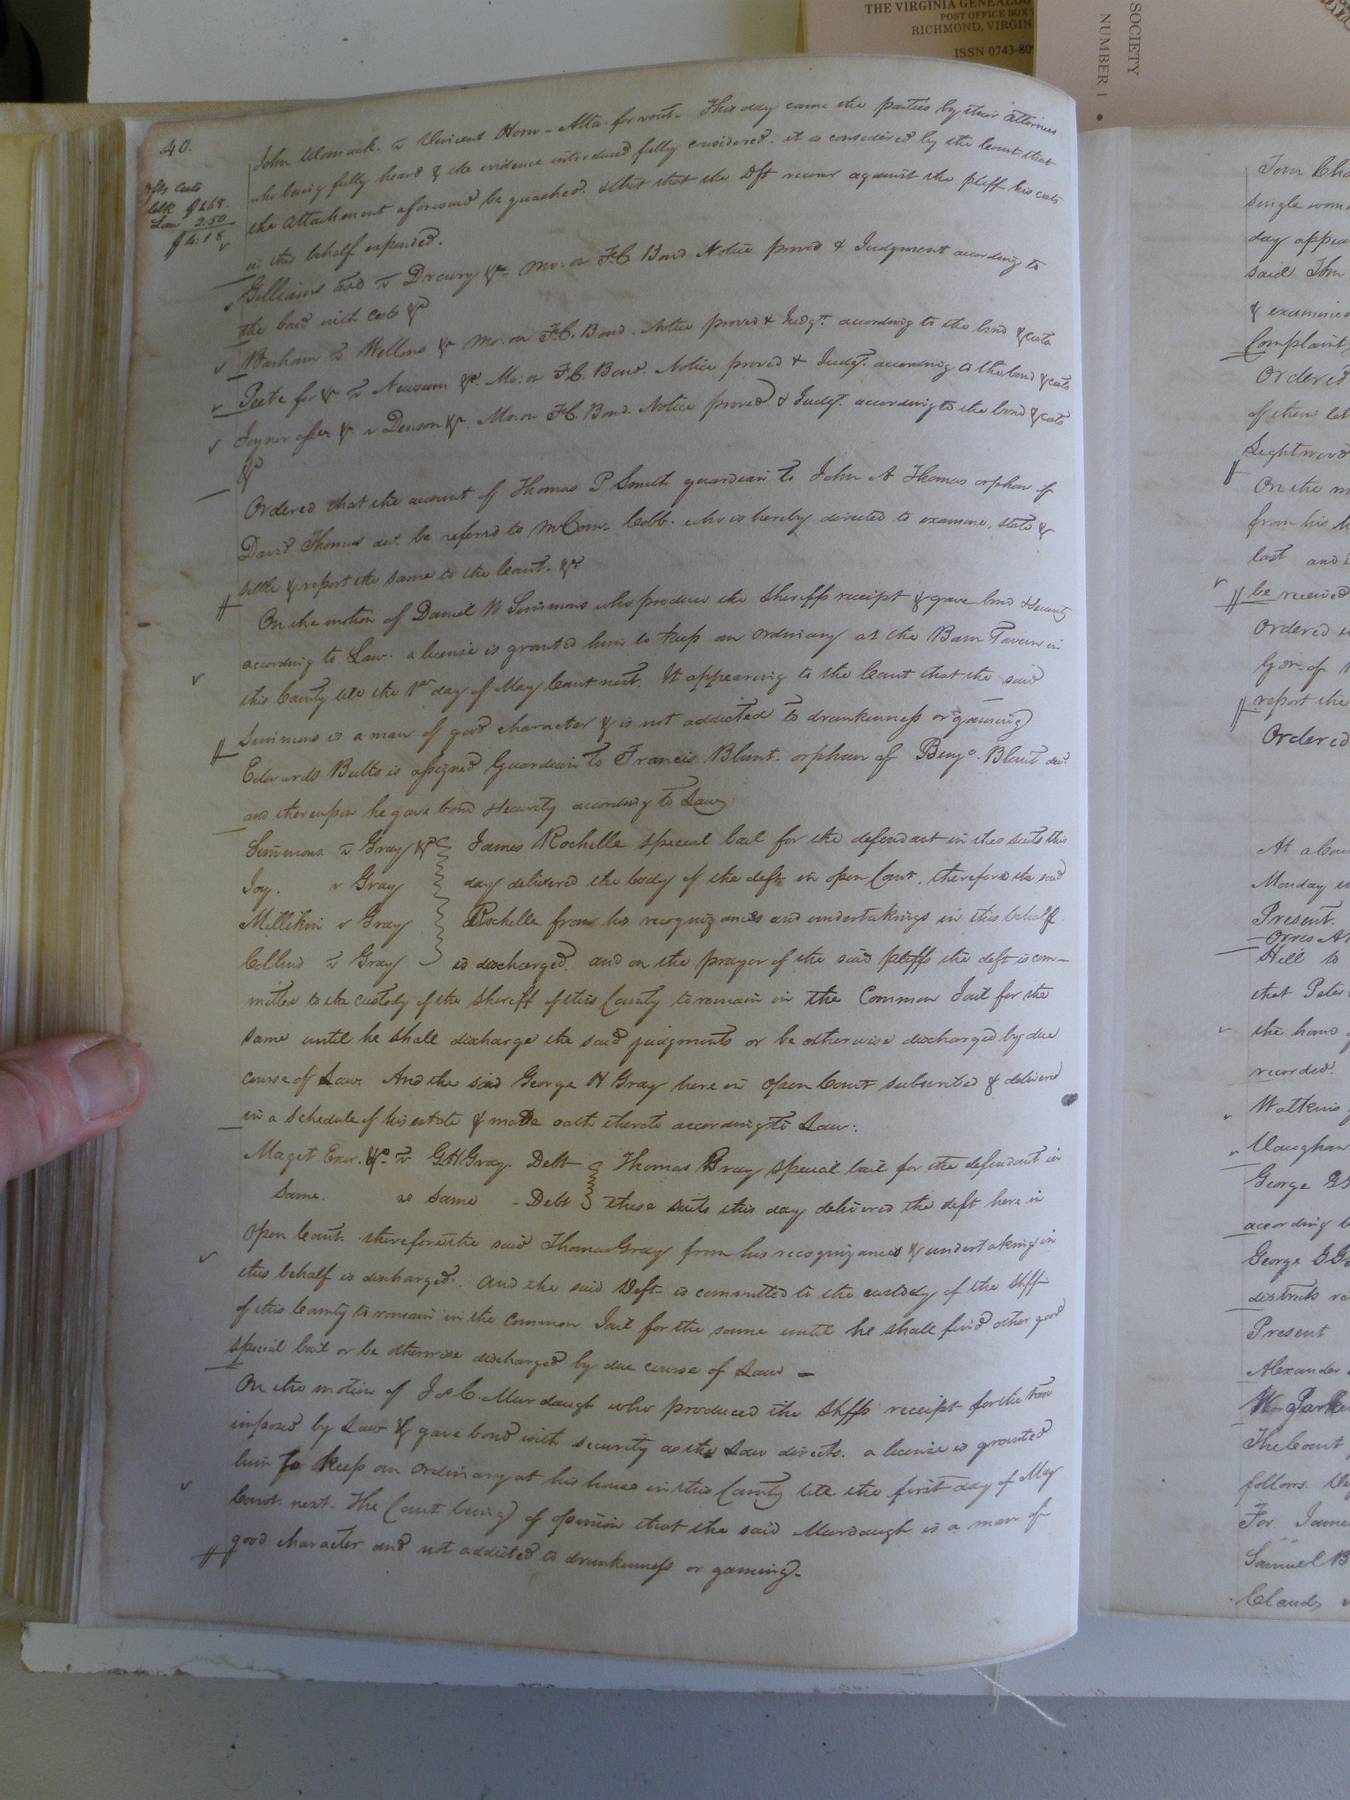 THE VIRGINIA GENEALOG
POST OFFICE BOX
RICHMOND, VIRGIN
ISSN 0743-80
SOCIETY
NUMBER 1
40.
John Womack. vs Vincent Horn - Atta. for rent - This day came the parties by their attornies
who being fully heard & the evidence introduced fully considered. it is considered by the Court that
the attachment aforesaid be quashed. & that the Dft recover against the pltff his costs
in this behalf expended.
Dfts Costs
Clk $1.68
Law 2.50
$4.18
vs Drewry &c. mo: on F.C. Bond Notice proved & Judgment according to
the bond with costs &c
Barham vs Wellons &c mo: on F.C. Bond. Notice proved & Judgt. according to the bond & costs
Peete for &c vs Newsum &c. Mo: on F.C. Bond. Notice proved & Judgt. according to the bond & costs
Joyner assee &c. v Denson &c. Mo: on F.C. Bond. Notice proved & Judgt. according to the bond & costs
&c
Ordered that the account of Thomas P Smith guardian to John A Thomas orphan of
David Thomas dec. be referred to mr Com. Cobb. who is hereby directed to examine, state &
settle & report the same to the Court. &c
On the motion of Daniel W Simmons who produce the Sheriffs receipt & gave bond & security
according to Law. a license is granted him to keep an ordinary at the Barn Tavern in
this County till the 1st day of May Court next. It appearing to the Court that the said
Simmons is a man of good character & is not addicted to drunkenness or gaming
Edwards Butts is assigned Guardian to Francis Blunt. orphan of Benja. Blunt dec.
and thereupon he gave bond & security according to Law
Simmons vs Gray &c James Rochelle special bail for the defendant in these suits this
Joy. v Gray day delivered the body of the deft in open Court, therefore the said
Millikin v Gray Rochelle from his recognizances and undertakings in this behalf
Collins vs Gray is discharged. and on the prayer of the said pltffs the deft is com-
mitted to the custody of the Sheriff of this County to remain in the Common Jail for the
same until he shall discharge the said judgments or be otherwise discharged by due
course of Law. And the said George H Gray here in open Court subscribed & delivered
in a Schedule of his estate & made oath thereto according to Law.
Maget Exor. &c. vs G.H.Gray. Debt Thomas Gray special bail for the defendant in
Same. vs Same - Debt these suits this day delivered the deft here in
open Court. therefore the said Thomas Gray from his recognizances & undertakings in
this behalf is discharged. And the said Deft is committed to the custody of the Shff
of this County to remain in the Common Jail for the same until he shall find other good
special bail or be otherwise discharged by due course of Law -
On the motion of J & C. Murdaugh who produced the Shffs receipt for the tax
imposed by Law & gave bond with security as the Law directs. a license is granted
him to keep an ordinary at his house in this County till the first day of May
Court next. The Court being of opinion that the said Murdaugh is a man of
good character and not addicted to drunkenness or gaming.
single
day
said John
& examined
Complaint
Ordered
of them
On the
from his
last and
be received
Ordered
report the
Ordered
Monday
Present.
Hill to
that Peter
the hand
recorded.
Watkins
Vaughan
George
according
George
districts
Present
Alexander
The Court
follows.
For. James
Samuel B
Claud